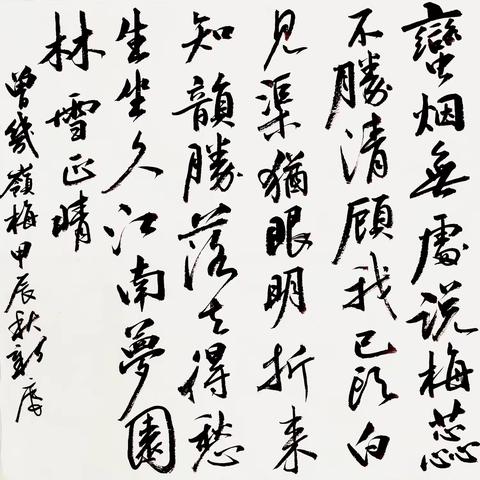 蠻烟無處説梅蕊
不勝清顧我已頭白
見渠猶眼明折来
知韻勝落去得愁
生坐久江南夢園
林雪正晴
曾幾嶺梅甲辰秋